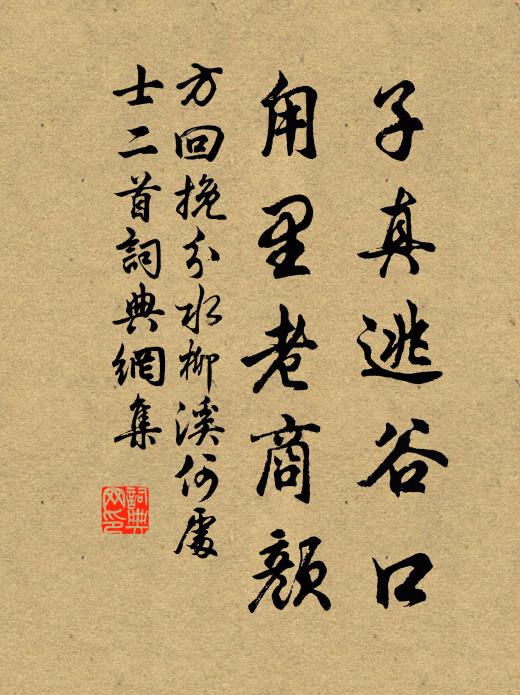 子真逃谷口
甪里老商顏
方回挽分水柳溪何處
士二首詞典網集
詞典網印